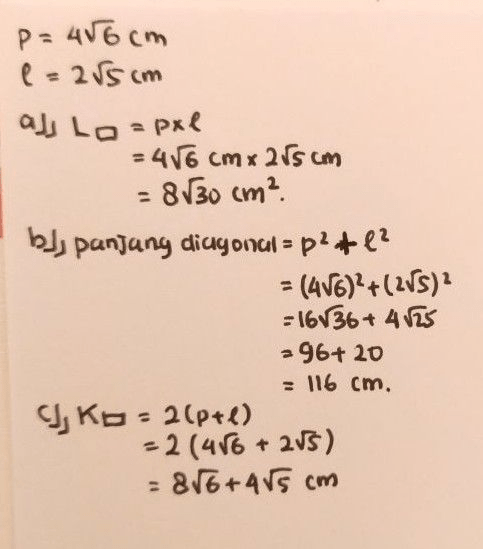 p = 4√6 cm
l = 2√5 cm
a)) L▭ = p×l
= 4√6 cm × 2√5 cm
= 8√30 cm².
b)) panjang diagonal = p² + l²
= (4√6)² + (2√5)²
= 16√36 + 4√25
= 96 + 20
= 116 cm.
c)) K▭ = 2(p+l)
= 2 (4√6 + 2√5)
= 8√6 + 4√5 cm